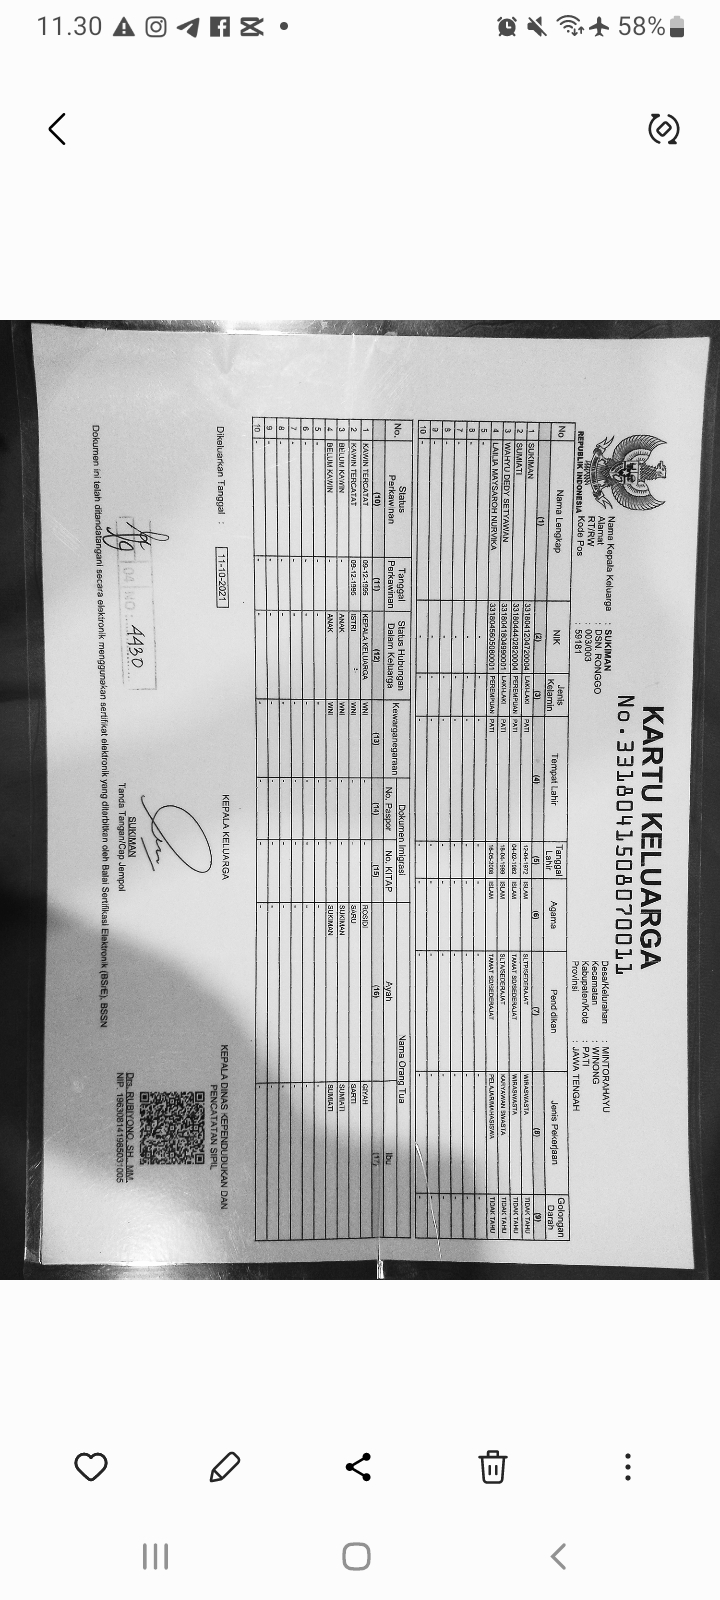 11.30 58%
KARTU KELUARGA
No. 3318041508070011
REPUBLIK INDONESIA
Nama Kepala Keluarga : SUKIMAN
Alamat : DSN. RONGGO
RT/RW : 003/003
Kode Pos : 59181
Desa/Kelurahan : MINTORAHAYU
Kecamatan : WINONG
Kabupaten/Kota : PATI
Provinsi : JAWA TENGAH
No Nama Lengkap NIK Jenis Kelamin Tempat Lahir Tanggal Lahir Agama Pendidikan Jenis Pekerjaan Golongan Darah
(1) (2) (3) (4) (5) (6) (7) (8) (9)
1 SUKIMAN 3318041204720004 LAKI-LAKI PATI 12-04-1972 ISLAM SLTP/SEDERAJAT WIRASWASTA TIDAK TAHU
2 SUMIATI 3318044402820004 PEREMPUAN PATI 04-02-1982 ISLAM TAMAT SD/SEDERAJAT WIRASWASTA TIDAK TAHU
3 WAHYU DEDY SETYAWAN 3318041804990001 LAKI-LAKI PATI 18-04-1999 ISLAM SLTA/SEDERAJAT KARYAWAN SWASTA TIDAK TAHU
4 LAILIA MAYSAROH NURVIKA 3318045605080001 PEREMPUAN PATI 16-05-2008 ISLAM TAMAT SD/SEDERAJAT PELAJAR/MAHASISWA TIDAK TAHU
5 - - - - - - - - -
6 - - - - - - - - -
7 - - - - - - - - -
8 - - - - - - - - -
9 - - - - - - - - -
10 - - - - - - - - -
No. Status Perkawinan Tanggal Perkawinan Status Hubungan Dalam Keluarga Kewarganegaraan Dokumen Imigrasi Nama Orang Tua
No. Paspor No. KITAP Ayah Ibu
(10) (11) (12) (13) (14) (15) (16) (17)
1 KAWIN TERCATAT 09-12-1995 KEPALA KELUARGA WNI - - ROSIDI GIYAH
2 KAWIN TERCATAT 09-12-1995 ISTRI WNI - - SARU SARTI
3 BELUM KAWIN - ANAK WNI - - SUKIMAN SUMIATI
4 BELUM KAWIN - ANAK WNI - - SUKIMAN SUMIATI
5 - - - - - - - -
6 - - - - - - - -
7 - - - - - - - -
8 - - - - - - - -
9 - - - - - - - -
10 - - - - - - - -
Dikeluarkan Tanggal : 11-10-2021
KEPALA KELUARGA
SUKIMAN
Tanda Tangan/Cap Jempol
KEPALA DINAS KEPENDUDUKAN DAN
PENCATATAN SIPIL
Drs. RUBIYONO, SH., MM.
NIP. 196308141985031005
04 NO : 4430
Dokumen ini telah ditandatangani secara elektronik menggunakan sertifikat elektronik yang diterbitkan oleh Balai Sertifikasi Elektronik (BSrE), BSSN